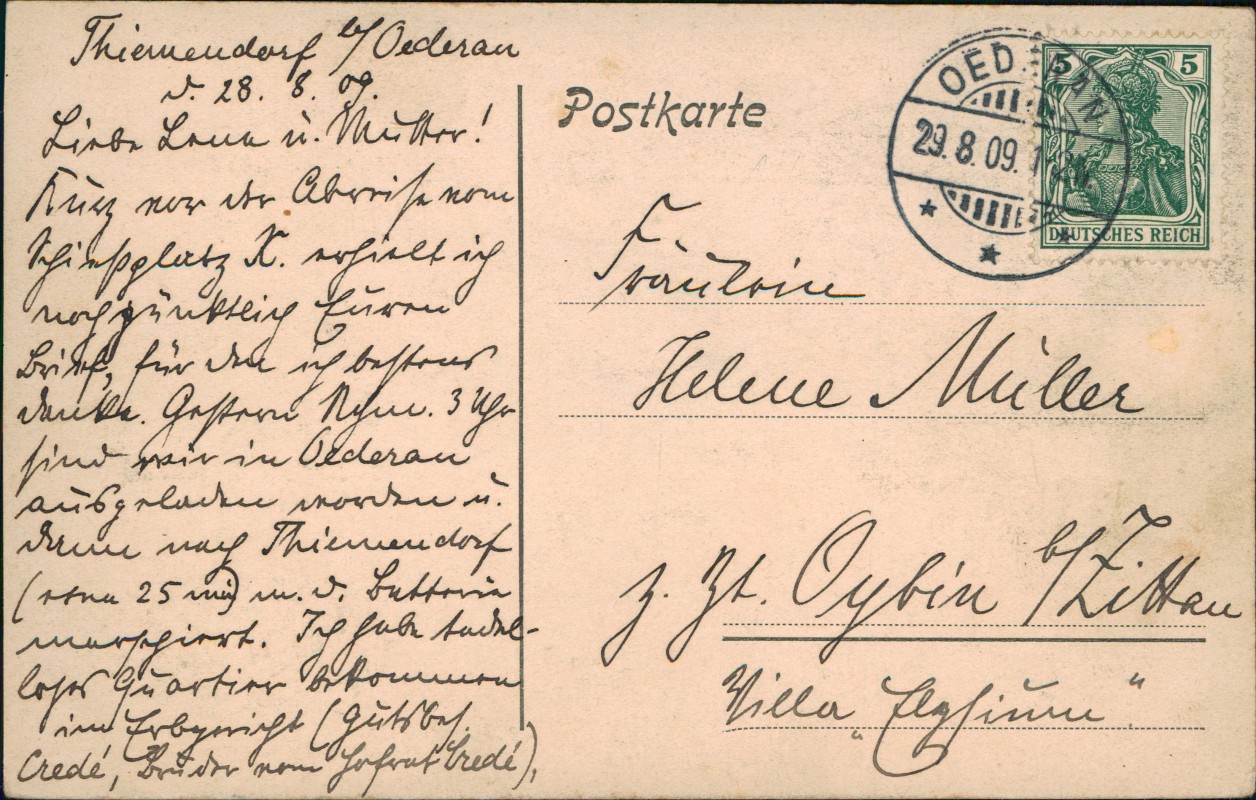 Thiemendorf b/Oederan
d. 28. 8. 09.
Liebe Lena u. Mutter!
Kurz vor der Abreise vom
Schießplatz K. erhielt ich
noch pünktlich Euren
Brief, für den ich bestens
danke. Gestern Nchm. 3 Uhr
sind wir in Oederan
ausgeladen worden u.
dann nach Thiemendorf
(etwa 25 min) m. d. Batterie
marschiert. Ich habe tadel-
loses Quartier bekommen
im Erbgericht (Gutsbes.
Credé, Bruder vom Hofrat Credé),
Postkarte
OEDERAN
29.8.09.
5 5
DEUTSCHES REICH
Fräulein
Helene Müller
z. Zt. Oybin b/Zittau
Villa „Elysium"